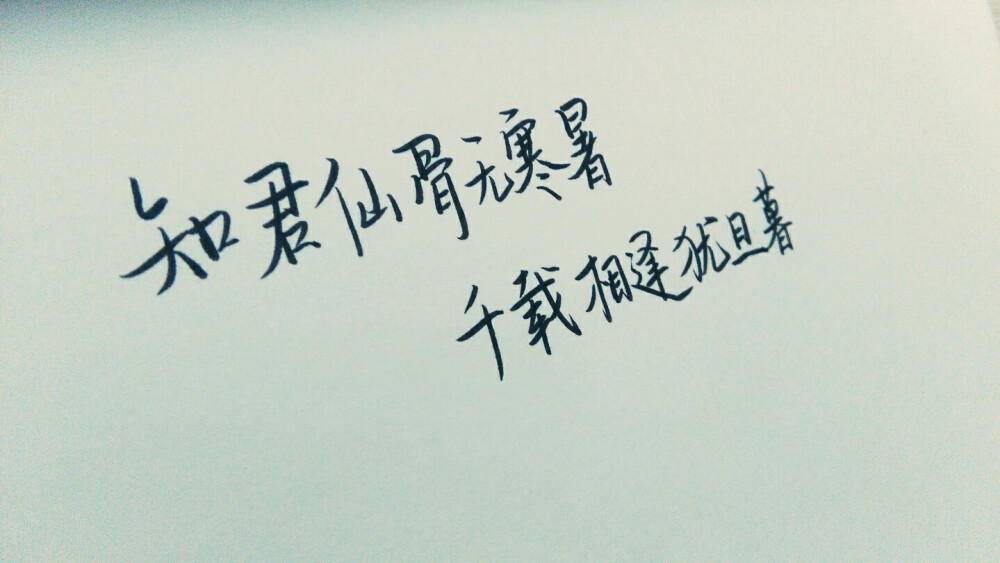 知君仙骨无寒暑
千载相逢犹旦暮